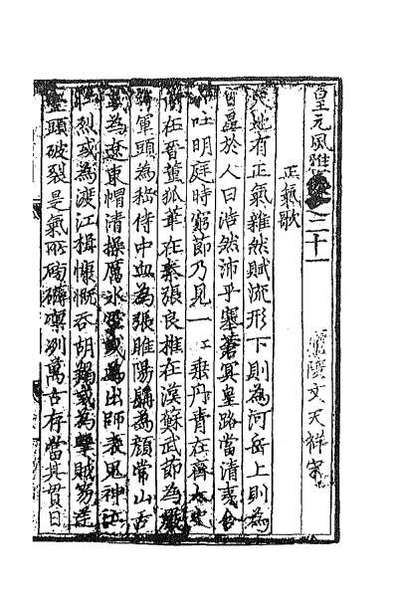 皇元風雅卷之二十一
廬陵文天祥宋
正氣歌
天地有正氣雜然賦流形下則為河岳上則為
日星於人曰浩然沛乎塞蒼冥皇路當清夷含
和吐明庭時窮節乃見一一垂丹青在齊太史
簡在晉董狐筆在秦張良椎在漢蘇武節為嚴
將軍頭為嵇侍中血為張睢陽齒為顏常山舌
或為遼東帽清操厲氷雪或為出師表鬼神泣
壯烈或為渡江楫慷慨吞胡羯或為擊賊笏逆
豎頭破裂是氣所磅礴凛冽萬古存當其貫日